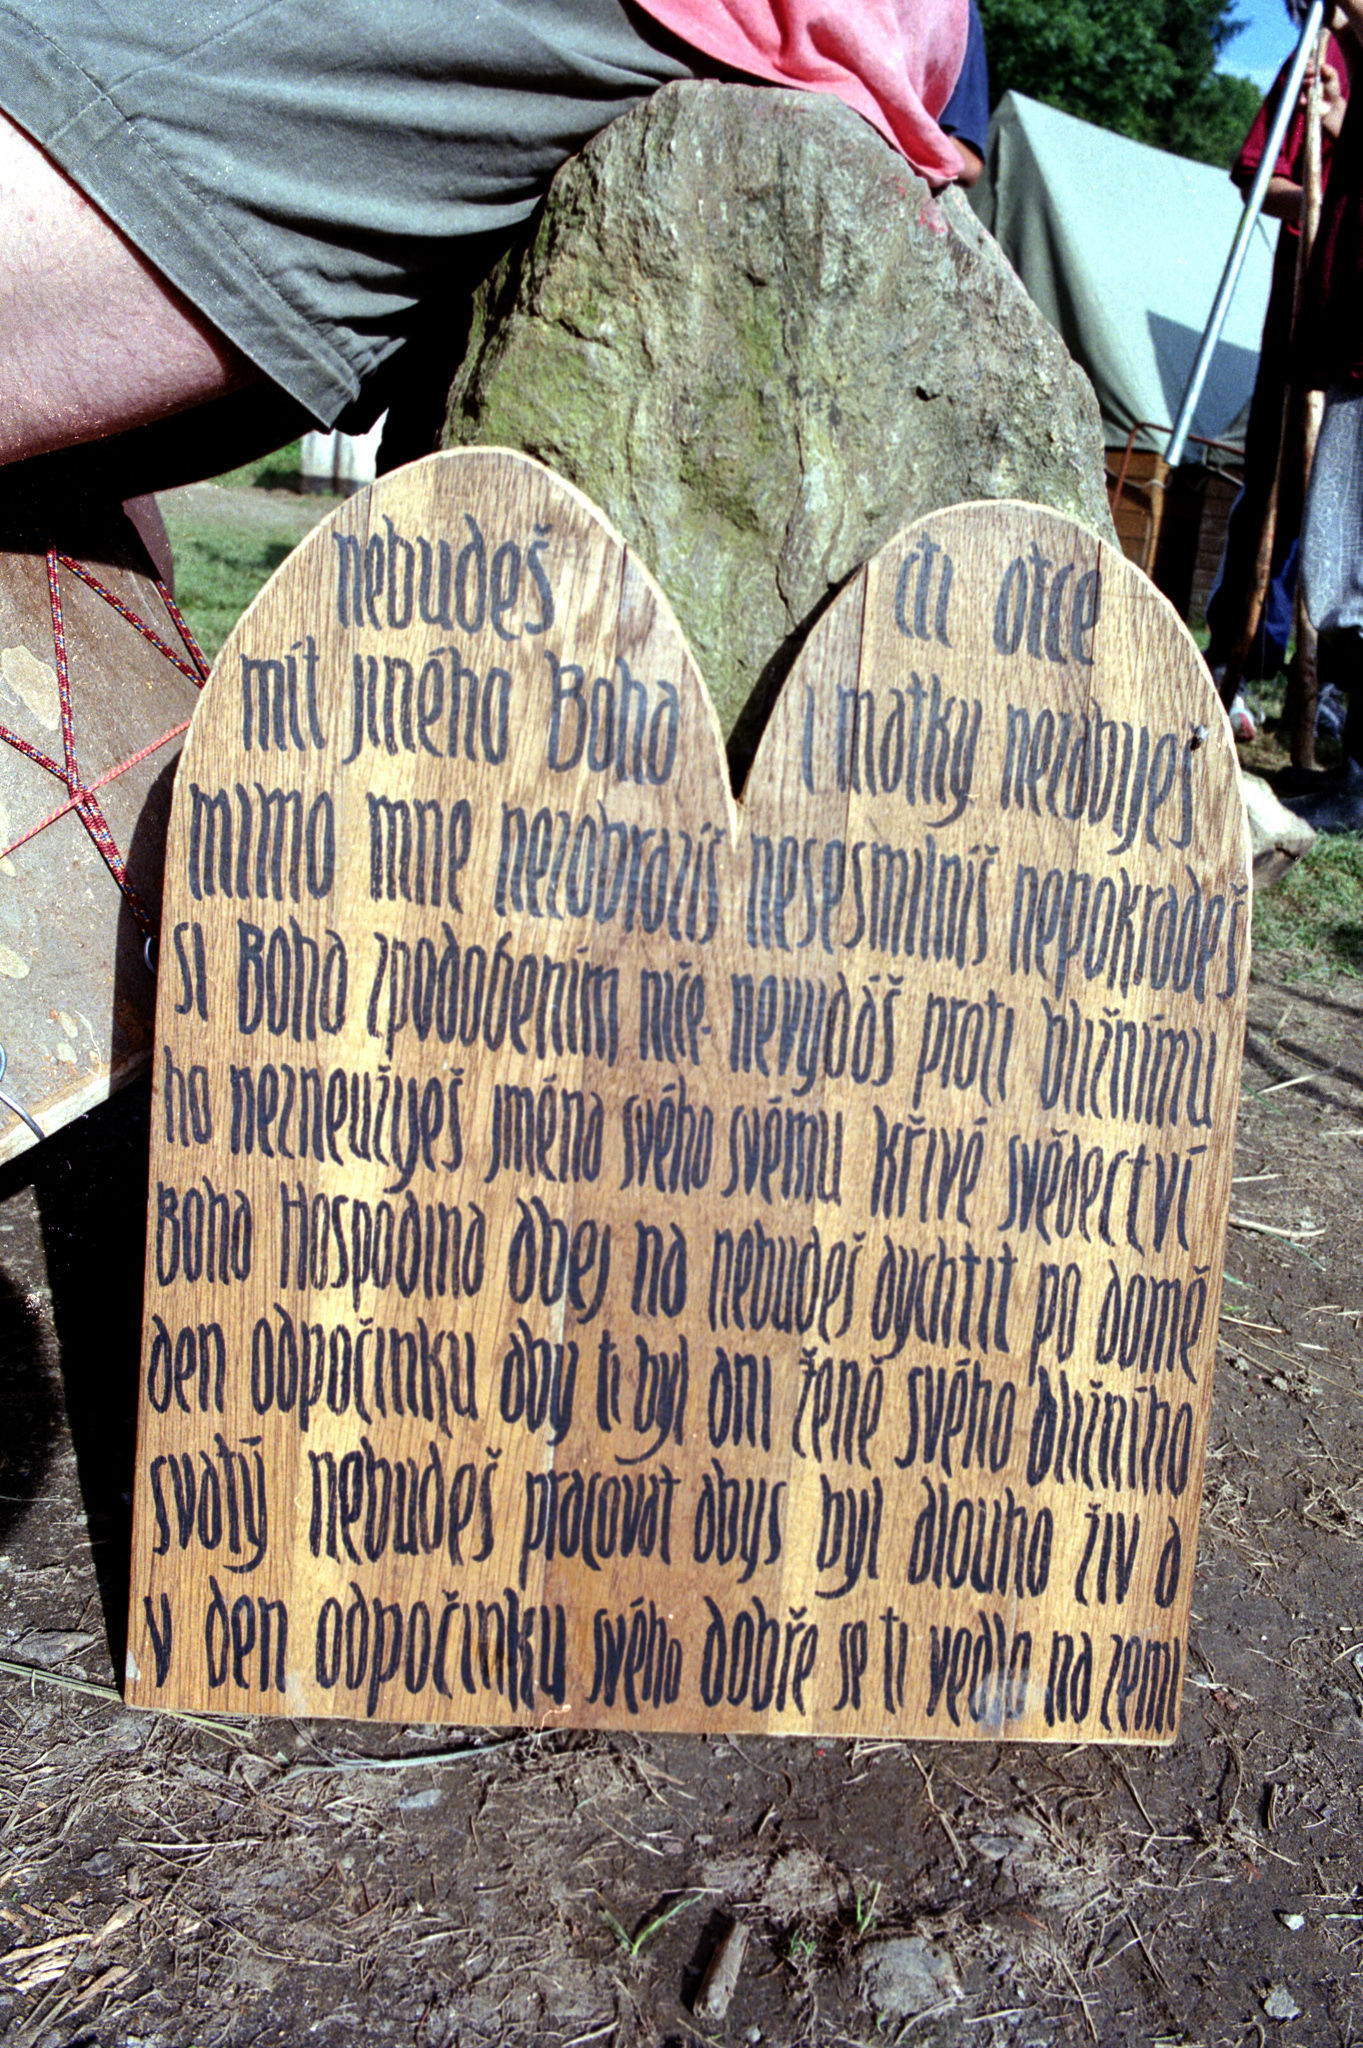 nebudeš
mít jiného Boha
mimo mne nezobrazíš
si Boha zpodobením niče-
ho nezneužiješ jména svého
Boha Hospodina dbej na
den odpočinku aby ti byl
svatý nebudeš pracovat
v den odpočinku svého
cti otce
i matky nezabiješ
nesesmilníš nepokradeš
nevydáš proti bližnímu
svému křivé svědectví
nebudeš dychtit po domě
ani ženě svého bližního
abys byl dlouho živ a
dobře se ti vedlo na zemi